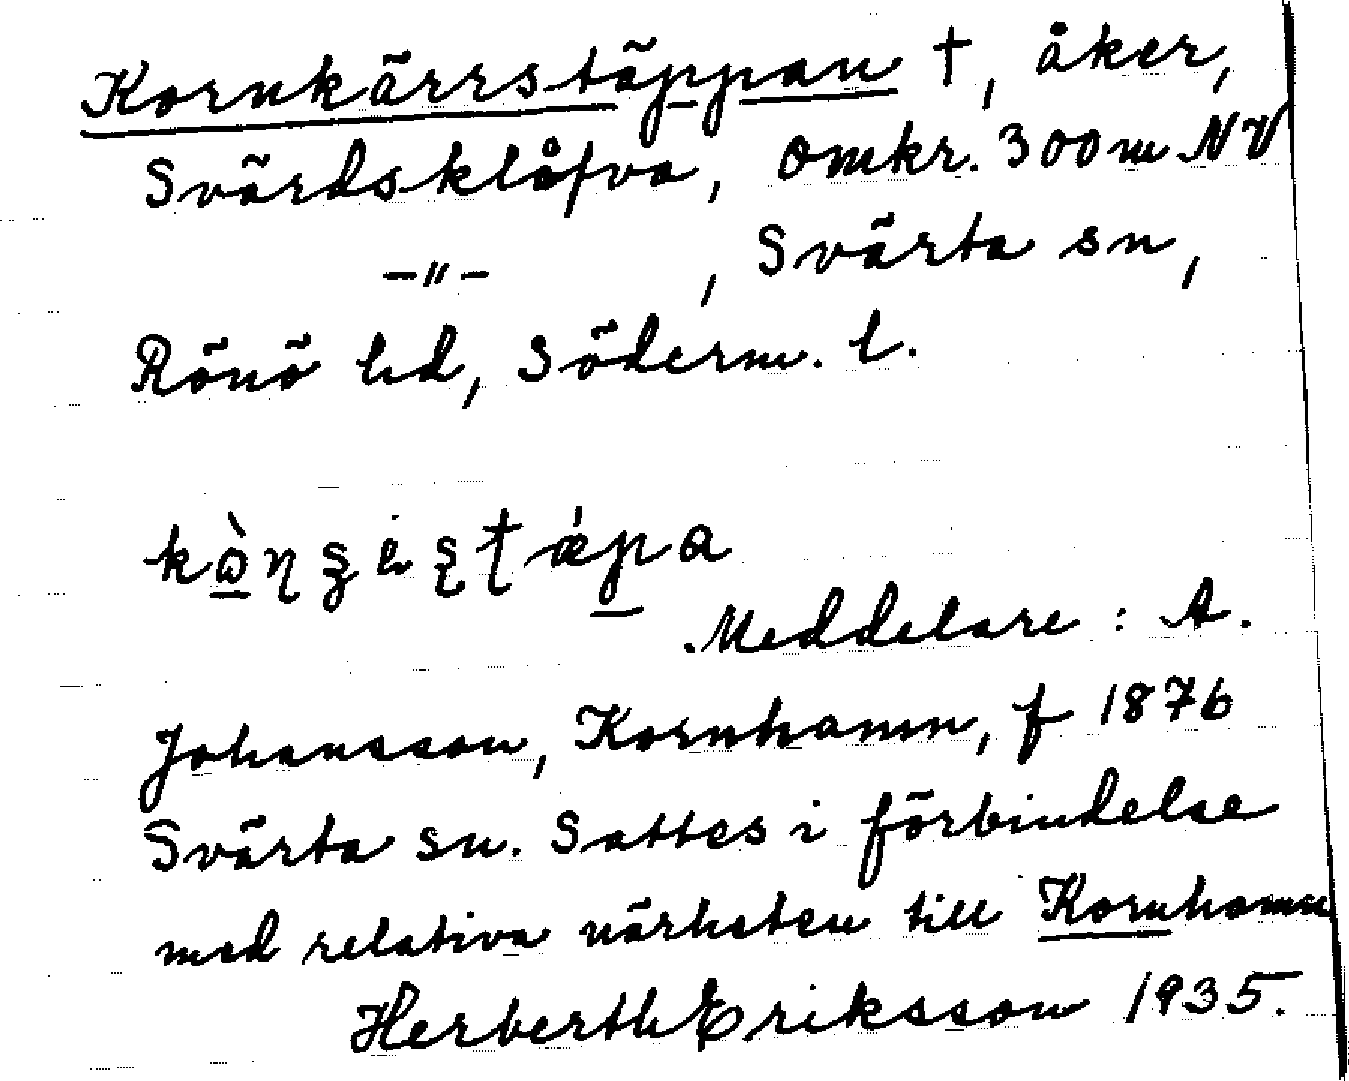 Kornkärrstäppan †, åker,
Svärdsklåfva, omkr. 300 m NV
–〃–, Svärta sn,
Rönö hd, Söderm. l.
Meddelare: A.
Johansson, Kornhamn, f 1876
Svärta sn. Sattes i förbindelse
med relativa närheten till Kornhamn
Herberth Eriksson 1935.